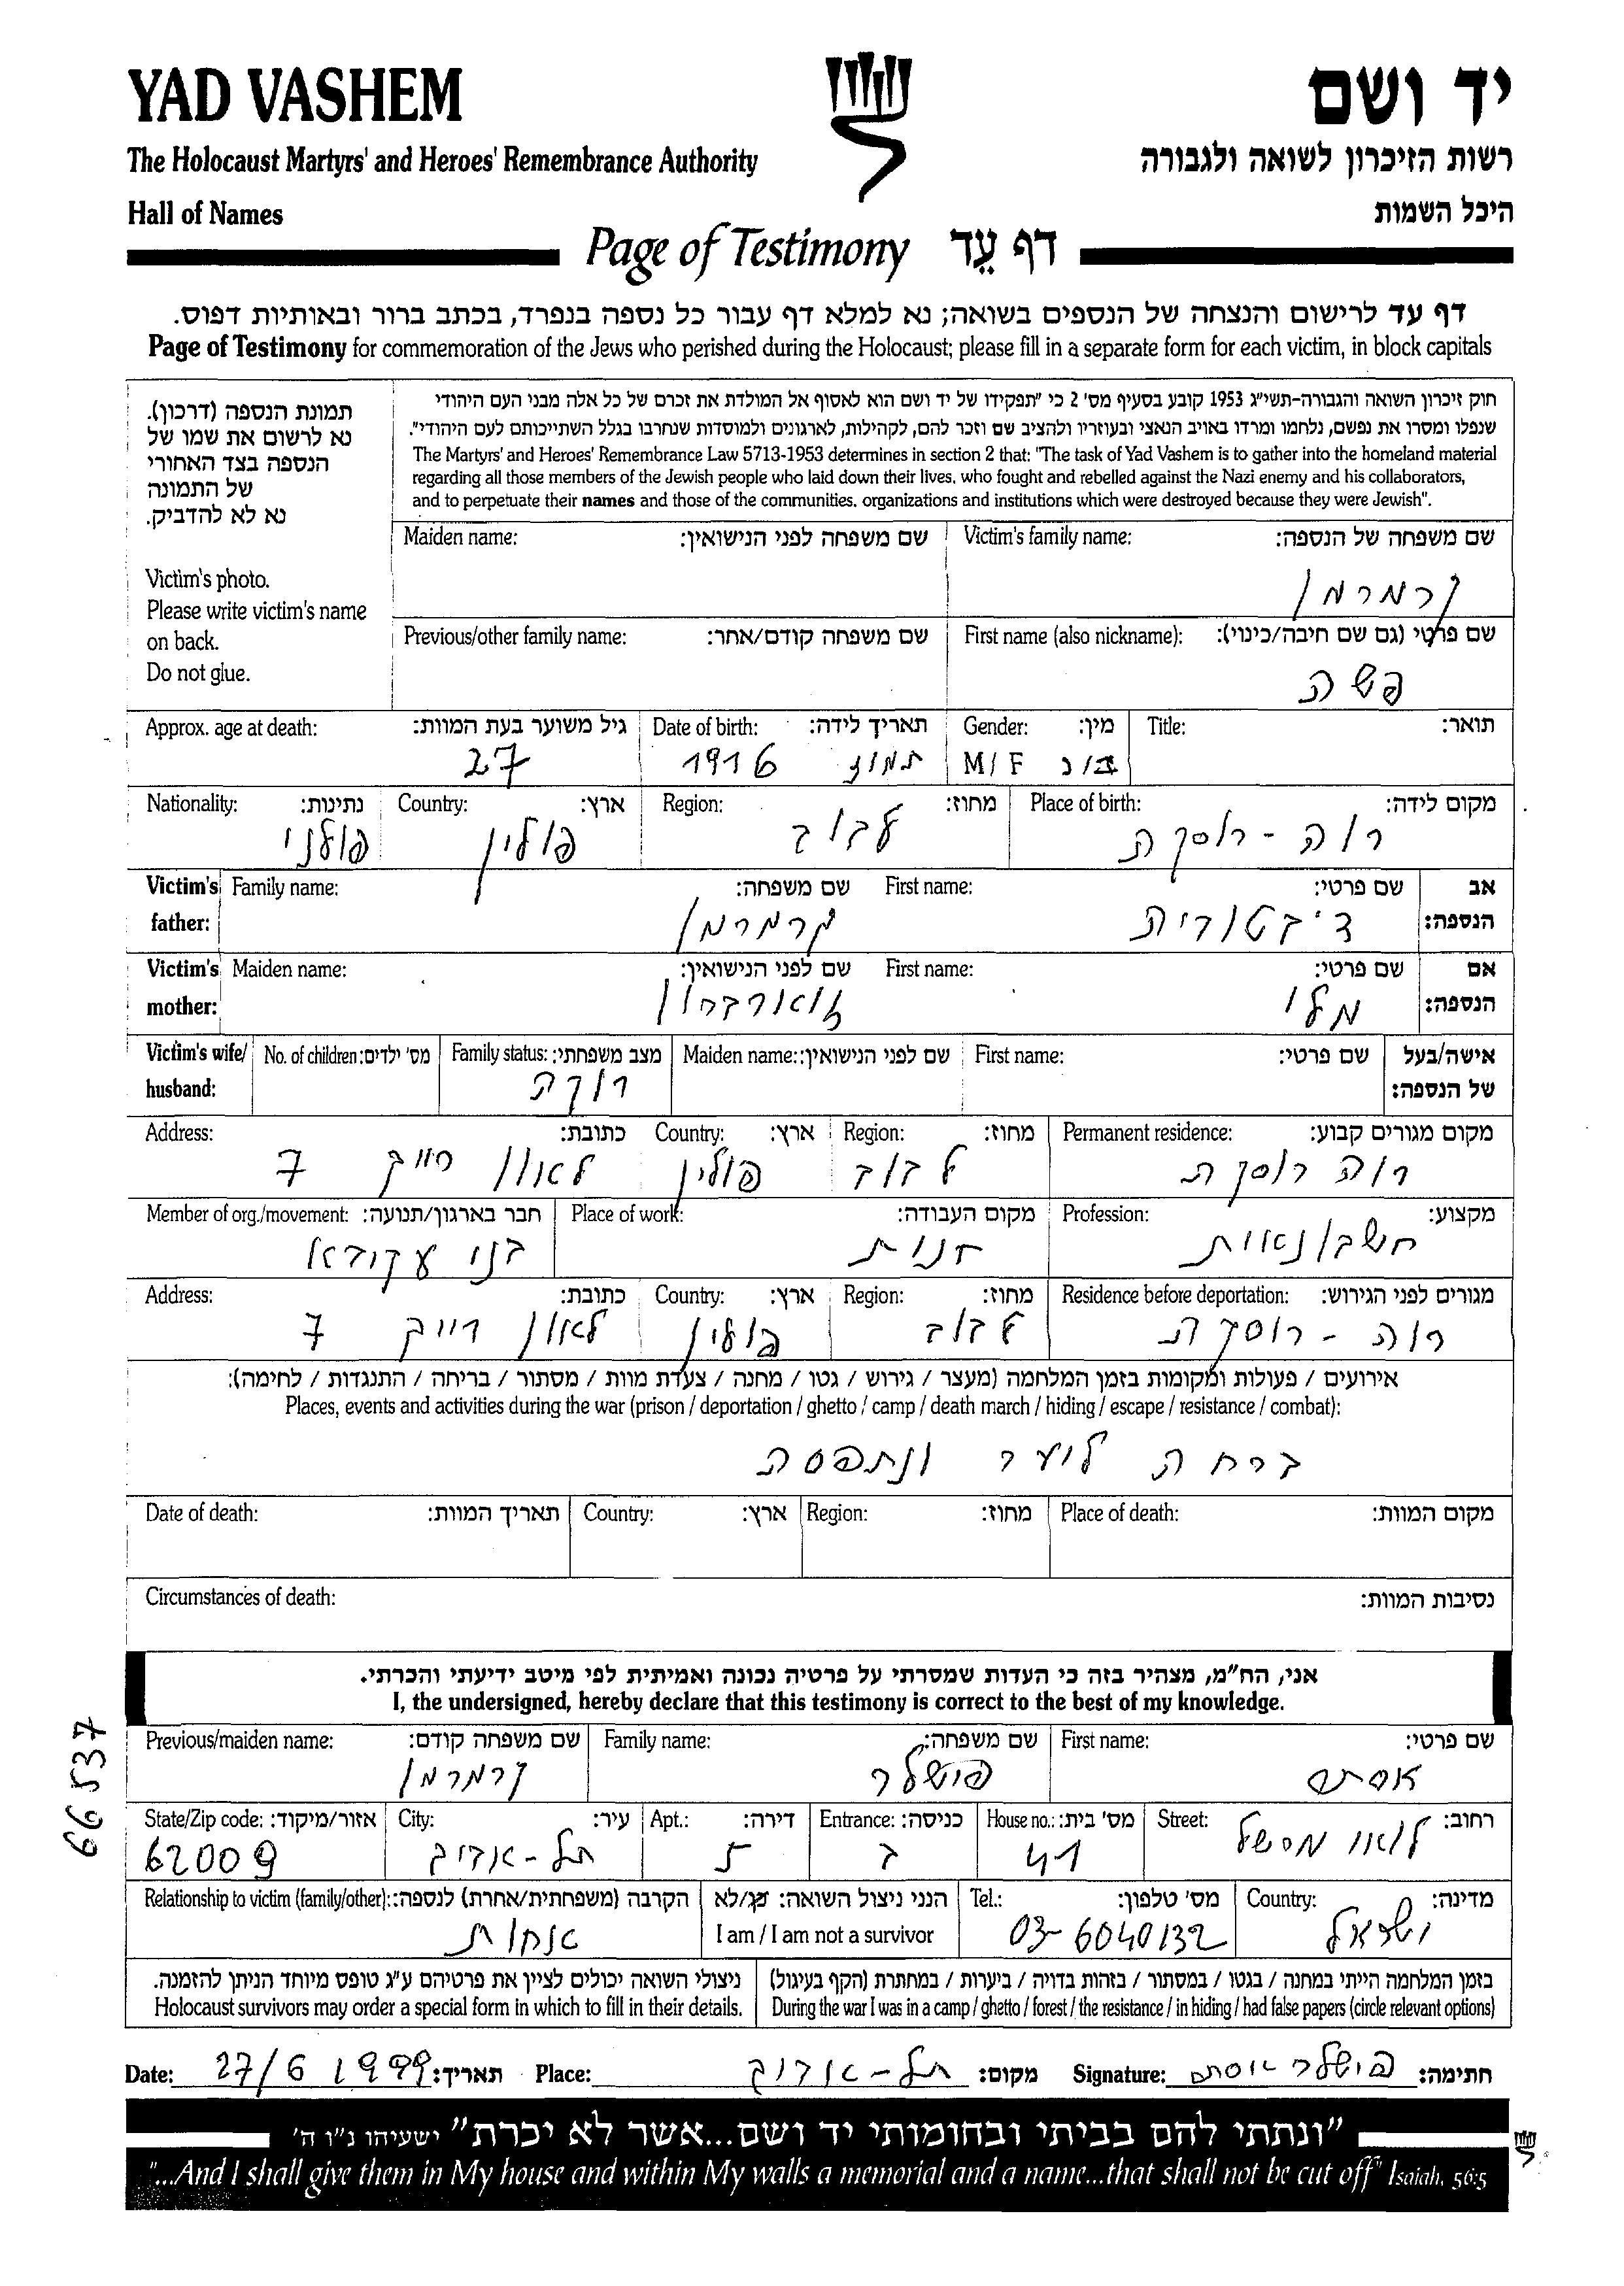 YAD VASHEM
יד ושם
The Holocaust Martyrs' and Heroes' Remembrance Authority
רשות הזיכרון לשואה ולגבורה
Hall of Names
היכל השמות
Page of Testimony דף עֵד
דף עד לרישום והנצחה של הנספים בשואה; נא למלא דף עבור כל נספה בנפרד, בכתב ברור ובאותיות דפוס.
Page of Testimony for commemoration of the Jews who perished during the Holocaust; please fill in a separate form for each victim, in block capitals
תמונת הנספה (דרכון).
נא לרשום את שמו של
הנספה בצד האחורי
של התמונה
נא לא להדביק.
Victim's photo.
Please write victim's name
on back.
Do not glue.
חוק זיכרון השואה והגבורה-תשי"ג 1953 קובע בסעיף מס' 2 כי "תפקידו של יד ושם הוא לאסוף אל המולדת את זכרם של כל אלה מבני העם היהודי
שנפלו ומסרו את נפשם, נלחמו ומרדו באויב הנאצי ובעוזריו ולהציב שם וזכר להם, לקהילות, לארגונים ולמוסדות שנחרבו בגלל השתייכותם לעם היהודי".
The Martyrs' and Heroes' Remembrance Law 5713-1953 determines in section 2 that: "The task of Yad Vashem is to gather into the homeland material
regarding all those members of the Jewish people who laid down their lives, who fought and rebelled against the Nazi enemy and his collaborators,
and to perpetuate their names and those of the communities, organizations and institutions which were destroyed because they were Jewish".
Maiden name: שם משפחה לפני הנישואין: Victim's family name: שם משפחה של הנספה:
קרמרמן
Previous/other family name: שם משפחה קודם/אחר: First name (also nickname): שם פרטי (גם שם חיבה/כינוי):
פשה
Approx. age at death: גיל משוער בעת המוות: Date of birth: תאריך לידה: Gender: מין: Title: תואר:
27 תמוז 1916 M/F ז/נ
Nationality: נתינות: Country: ארץ: Region: מחוז: Place of birth: מקום לידה:
פולני פולין לבוב רוה - רוסקה
Victim's father: Family name: שם משפחה: First name: שם פרטי: אב הנספה:
קרמרמן
Victim's mother: Maiden name: שם לפני הנישואין: First name: שם פרטי: אם הנספה:
Victim's wife/ husband: No. of children: מס' ילדים: Family status: מצב משפחתי: Maiden name: שם לפני הנישואין: First name: שם פרטי: אישה/בעל של הנספה:
רוקה
Address: כתובת: Country: ארץ: Region: מחוז: Permanent residence: מקום מגורים קבוע:
7 פולין לבוב רוה רוסקה
Member of org./movement: חבר בארגון/תנועה: Place of work: מקום העבודה: Profession: מקצוע:
בני עקיבא חנות חשבונאות
Address: כתובת: Country: ארץ: Region: מחוז: Residence before deportation: מגורים לפני הגירוש:
7 פולין לבוב רוה - רוסקה
אירועים / פעולות ומקומות בזמן המלחמה (מעצר / גירוש / גטו / מחנה / צעדת מוות / מסתור / בריחה / התנגדות / לחימה):
Places, events and activities during the war (prison / deportation / ghetto / camp / death march / hiding / escape / resistance / combat):
ברחה ליער ונתפסה
Date of death: תאריך המוות: Country: ארץ: Region: מחוז: Place of death: מקום המוות:
Circumstances of death: נסיבות המוות:
אני, הח"מ, מצהיר בזה כי העדות שמסרתי על פרטיה נכונה ואמיתית לפי מיטב ידיעתי והכרתי.
I, the undersigned, hereby declare that this testimony is correct to the best of my knowledge.
Previous/maiden name: שם משפחה קודם: Family name: שם משפחה: First name: שם פרטי:
קרמרמן פישלר אסתר
State/Zip code: אזור/מיקוד: City: עיר: Apt.: דירה: Entrance: כניסה: House no.: מס' בית: Street: רחוב:
62009 תל-אביב 5 ב 41
Relationship to victim (family/other): הקרבה (משפחתית/אחרת) לנספה: הנני ניצול השואה: כן/לא Tel.: מס' טלפון: Country: מדינה:
אחות I am / I am not a survivor 03-6040132 ישראל
ניצולי השואה יכולים לציין את פרטיהם ע"ג טופס מיוחד הניתן להזמנה.
Holocaust survivors may order a special form in which to fill in their details.
בזמן המלחמה הייתי במחנה / בגטו / במסתור / בזהות בדויה / ביערות / במחתרת (הקף בעיגול)
During the war I was in a camp / ghetto / forest / the resistance / in hiding / had false papers (circle relevant options)
Date: 27/6 1999 תאריך: Place: תל-אביב מקום: Signature: פישלר אסתר חתימה:
"ונתתי להם בביתי ובחומותי יד ושם...אשר לא יכרת" ישעיהו נ"ו ה'
"...And I shall give them in My house and within My walls a memorial and a name...that shall not be cut off" Isaiah, 56:5
66537